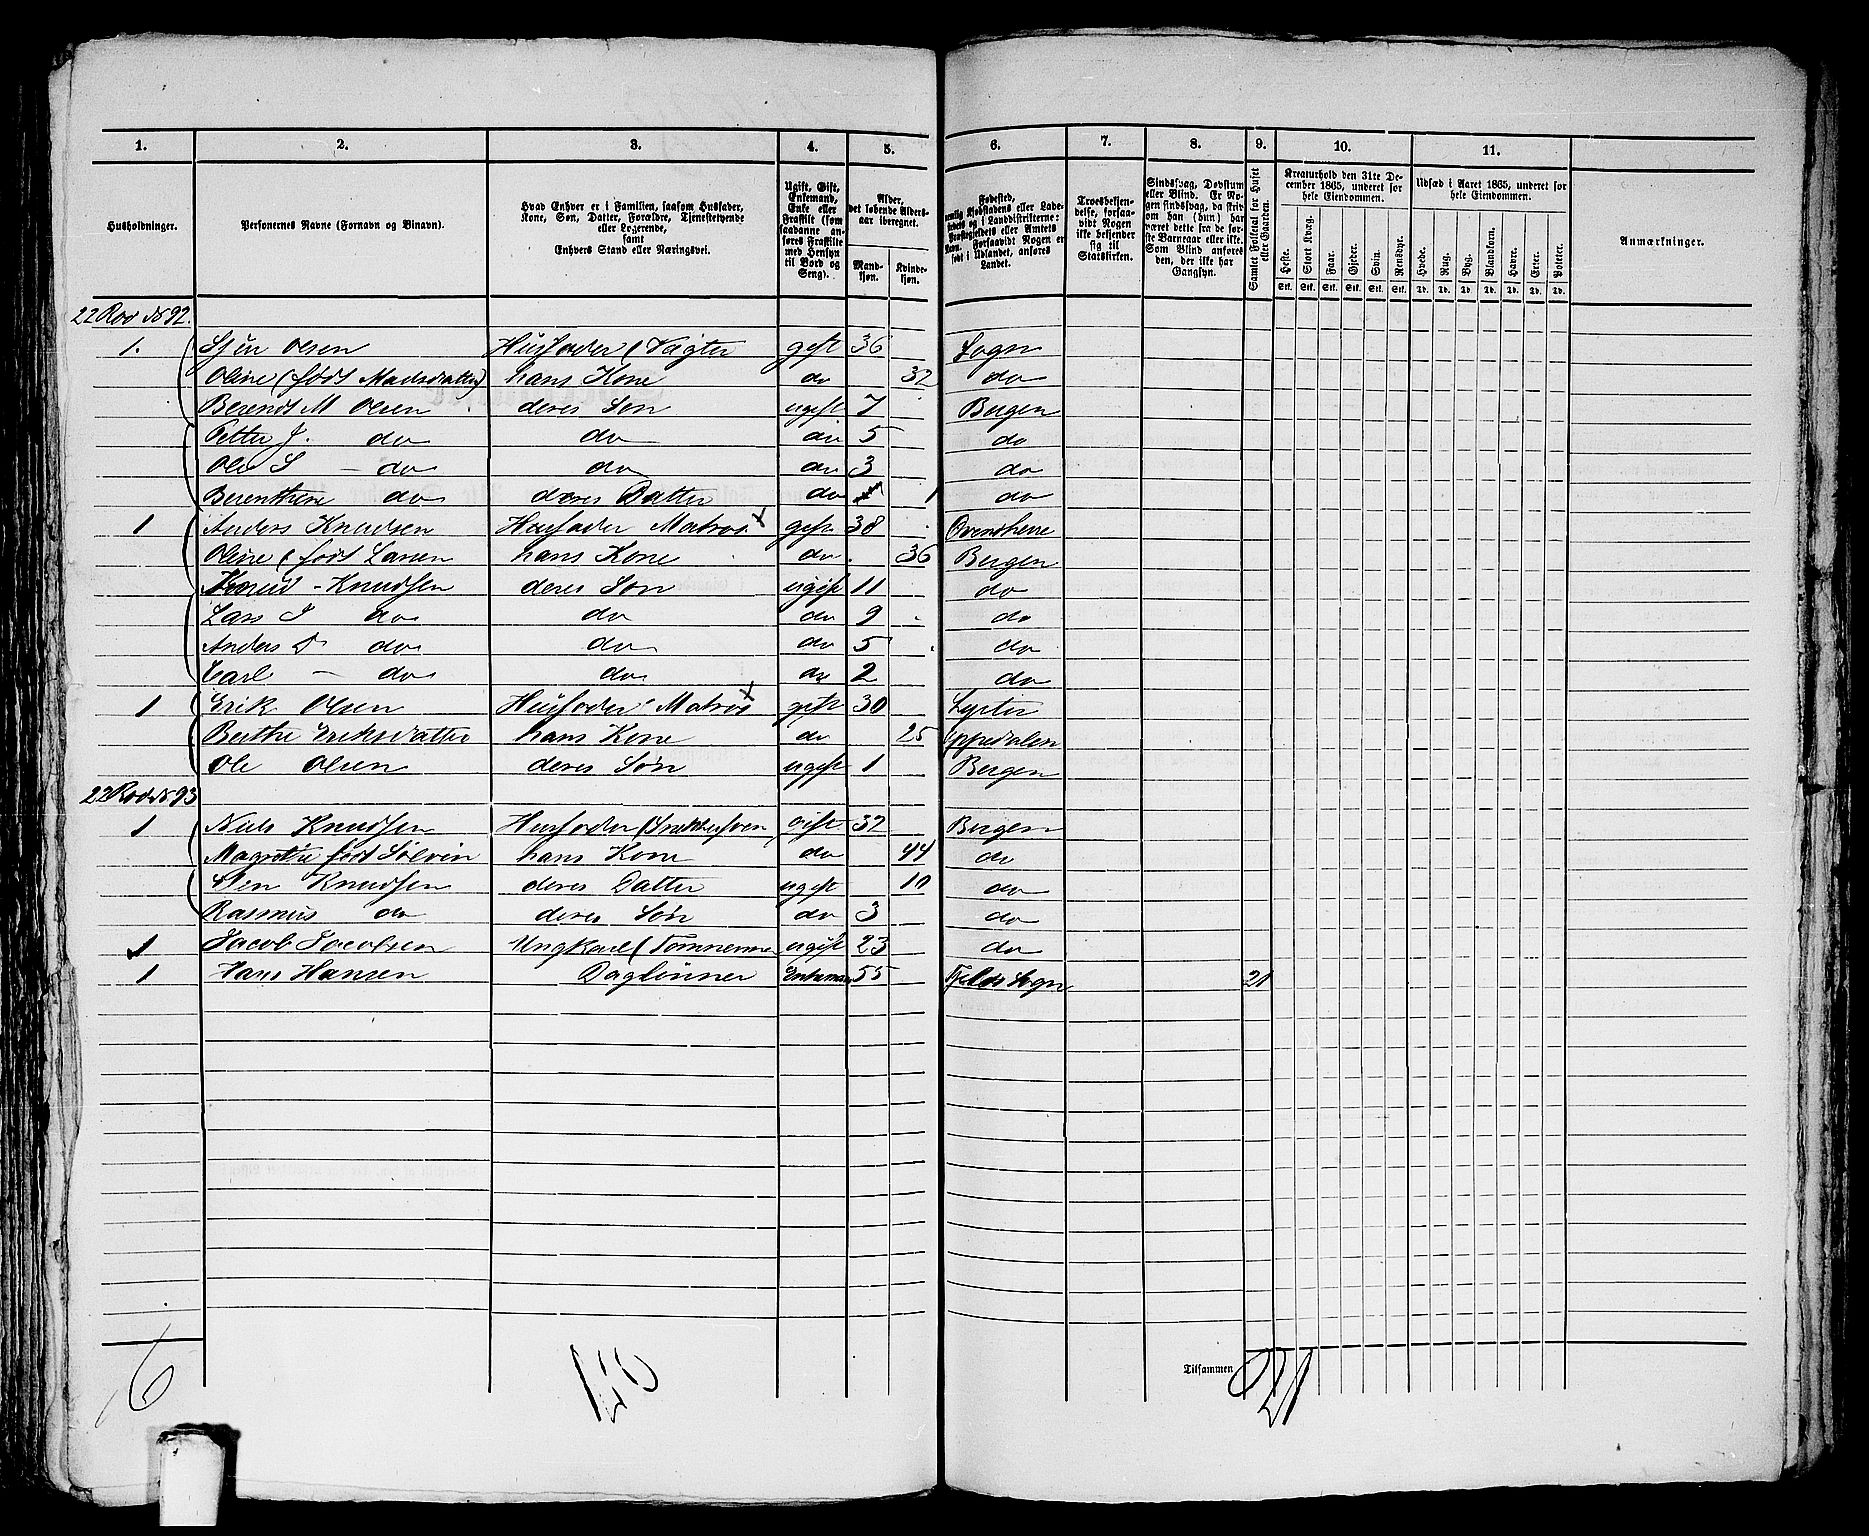 1. 2. 3. 4. 5. 6. 7. 8. 9. 10. 11.
Husholdninger.
Personernes Navne (Fornavn og Tilnavn).
Hvad Enhver er i Familien, saasom Husfader, Kone, Søn, Datter, Forældre, Tjenestetyende eller Logerende, samt Enhvers Stand eller Næringsvei.
Ugift, Gift, Enkemand, Enke eller Fraskilt (som saadanne anføres Fraskilte med Hensyn til Bord og Seng).
Alder, det løbende Aldersaar iberegnet.
Mandkjøn. Kvindekjøn.
Fødested, nemlig Kjøbstadens eller Ladestedets og i Landdistrikterne: Præstegjeldets eller Amtets Navn. Forsaavidt Nogen er født i Udlandet, anføres Landet.
Troesbekjendelse, forsaavidt Nogen ikke bekjender sig til Statskirken.
Sindssvag, Døvstum eller Blind. Er Nogen sindssvag, da skrives om han (hun) har været dette fra de første Barneaar eller ikke. Som Blind anføres den, der ikke har Gangsyn.
Samlet Folketal for Huset eller Gaarden.
Kreaturhold den 31te December 1865, underet for hele Eiendommen.
Heste. Stort Kvæg. Faar. Gjeder. Svin. Rensdyr.
Stk. Stk. Stk. Stk. Stk. Stk.
Udsæd i Aaret 1865, underet for hele Eiendommen.
Hvede. Rug. Byg. Blandkorn. Havre. Erter. Poteter.
Td. Td. Td. Td. Td. Td. Td.
Anmærkninger.
22 Rod № 92.
1. Sjur Olsen Husfader (Vægter gift 36 Sogn
Oline (født Madsdatter) hans Kone do 32 do
Berendt M Olsen deres Søn ugift 7 Bergen
Petter J. do do do 5 do
Ole S do do do 3 do
Berenthine do deres Datter do 1 do
1 Anders Knudsen Husfader Matros x gift 38
Oline (født Larsen hans Kone do 36 Bergen
Knud Knudsen deres Søn ugift 11 do
Lars I do do do 9 do
Anders D do do do 5 do
Carl do do do 2 do
1 Erik Olsen Husfader Matros x gift 30 Lyster
Berthe Eriksdatter hans Kone do 25
Ole Olsen deres Søn ugift 1 Bergen
22 Rod № 93
1 Niels Knudsen Husfader (Snekkersven Gift 32 Bergen
Magrethe født Sølvin hans Kone do 44 do
Knudsen deres Datter ugift 10 do
Rasmus do deres Søn do 3 do
1 Jacob Jacobsen Ungkarl (Tømmermand ugift 23 do
1 Hans Hansen Daglønner Enkemand 55 Fjelds Sogn 21
6
Tilsammen 21